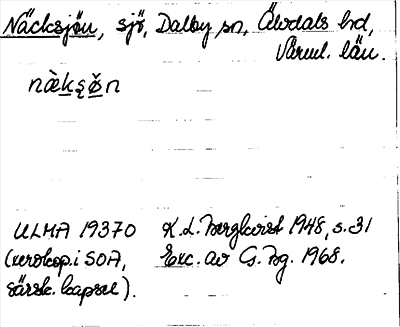 Näcksjön, sjö, Dalby sn, Älvdals hd,
Värml. län.
nàkʂø̌n
ULMA 19370 K. L. Bergkvist 1948, s. 31
(xerokop. i SOA, Exc. av G. Bg. 1968.
särsk. kapsel).